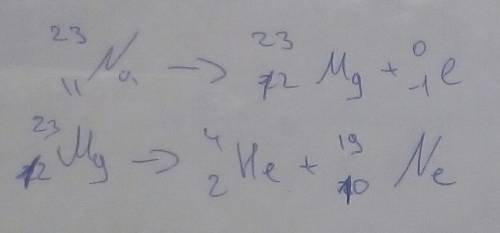 ²³₁₁Na → ²³₁₂Mg + ⁰₋₁e
²³₁₂Mg → ⁴₂He + ¹⁹₁₀Ne